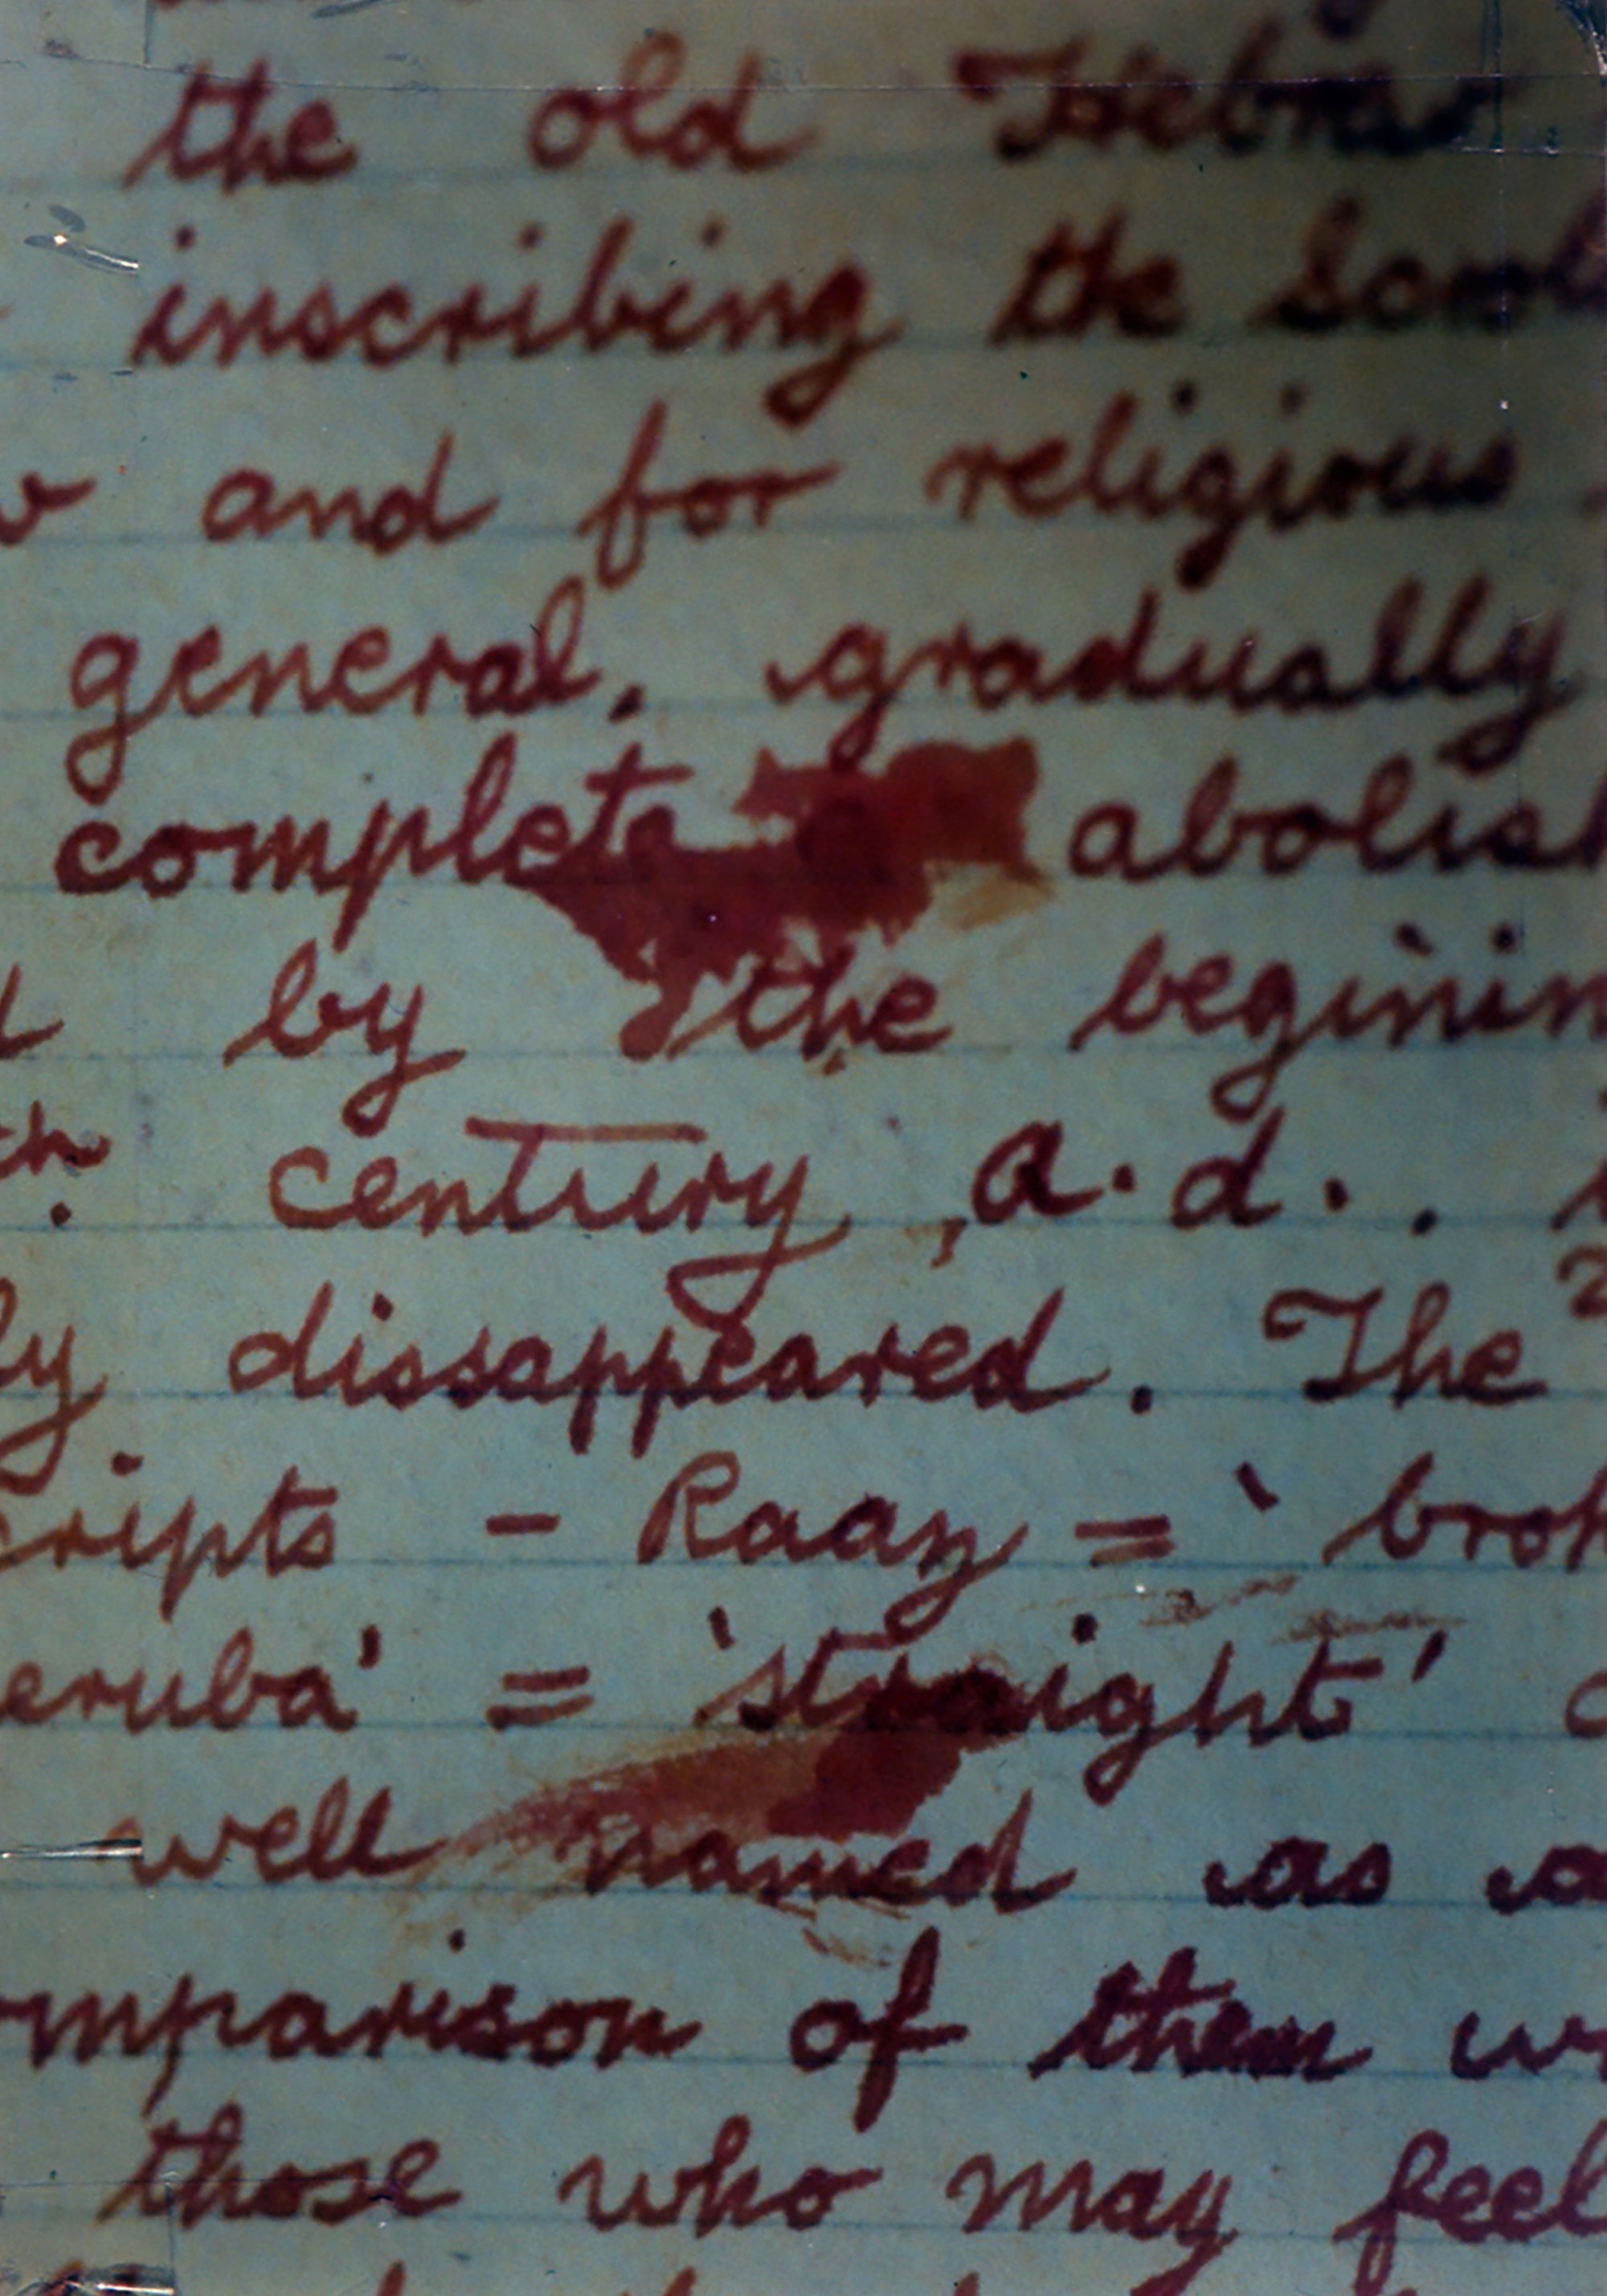 the old Hebrew
inscribing the Scrol
and for religious
general, gradually
complete abolish
by the beginin
th. century, a.d..
ly dissappeared. The
cripts - Raaz = ' brok
eruba' = 'straight'
well named as a
omparison of them w
those who may feel